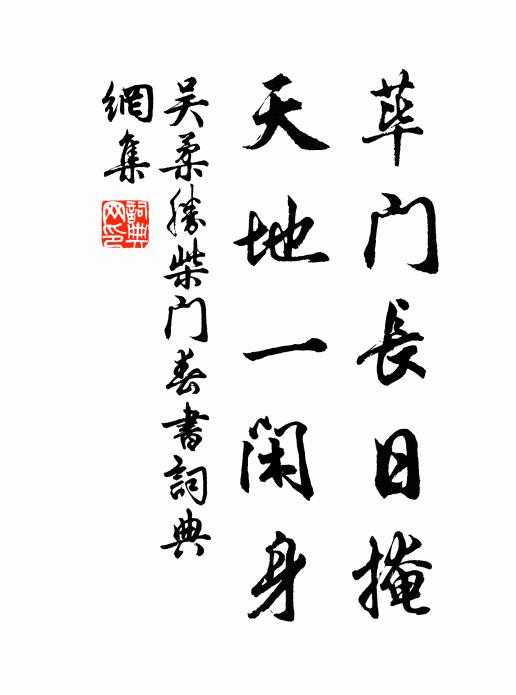 荜门長日掩
天地一闲身
吴柔勝柴门春書詞典
網集
詞典
网印